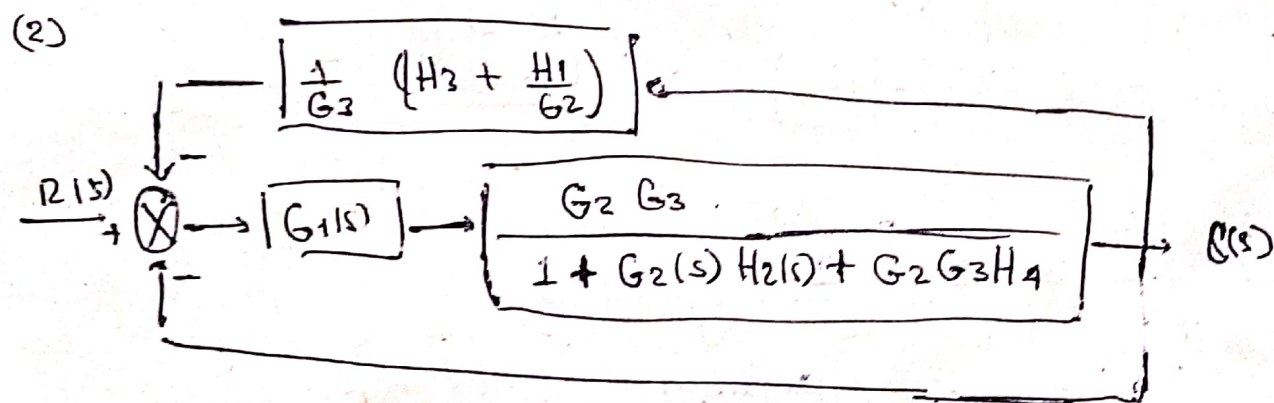 (2)
1/G3 (H3 + H1/G2)
R(s) + − − G1(s)
G2 G3
1 + G2(s) H2(s) + G2G3H4
C(s)